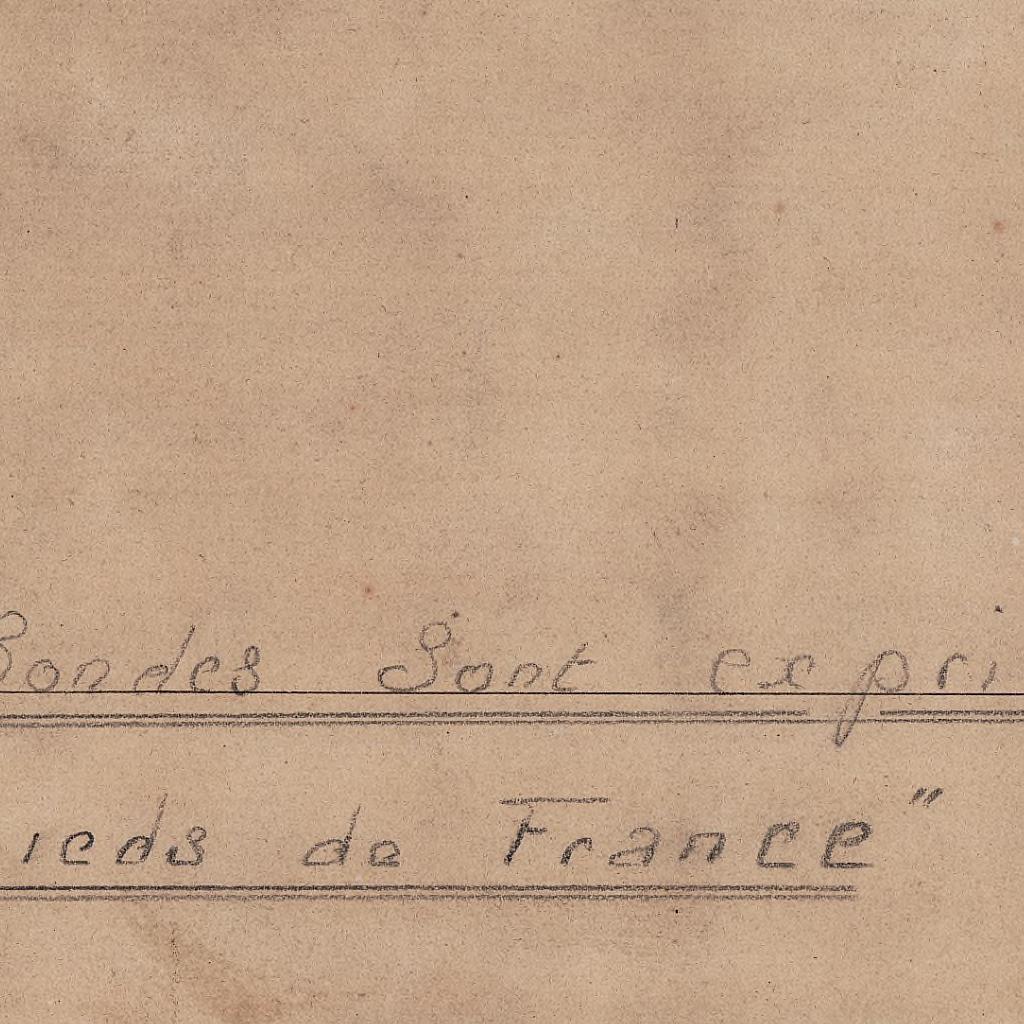 Sondes Sont expri
ieds de France"